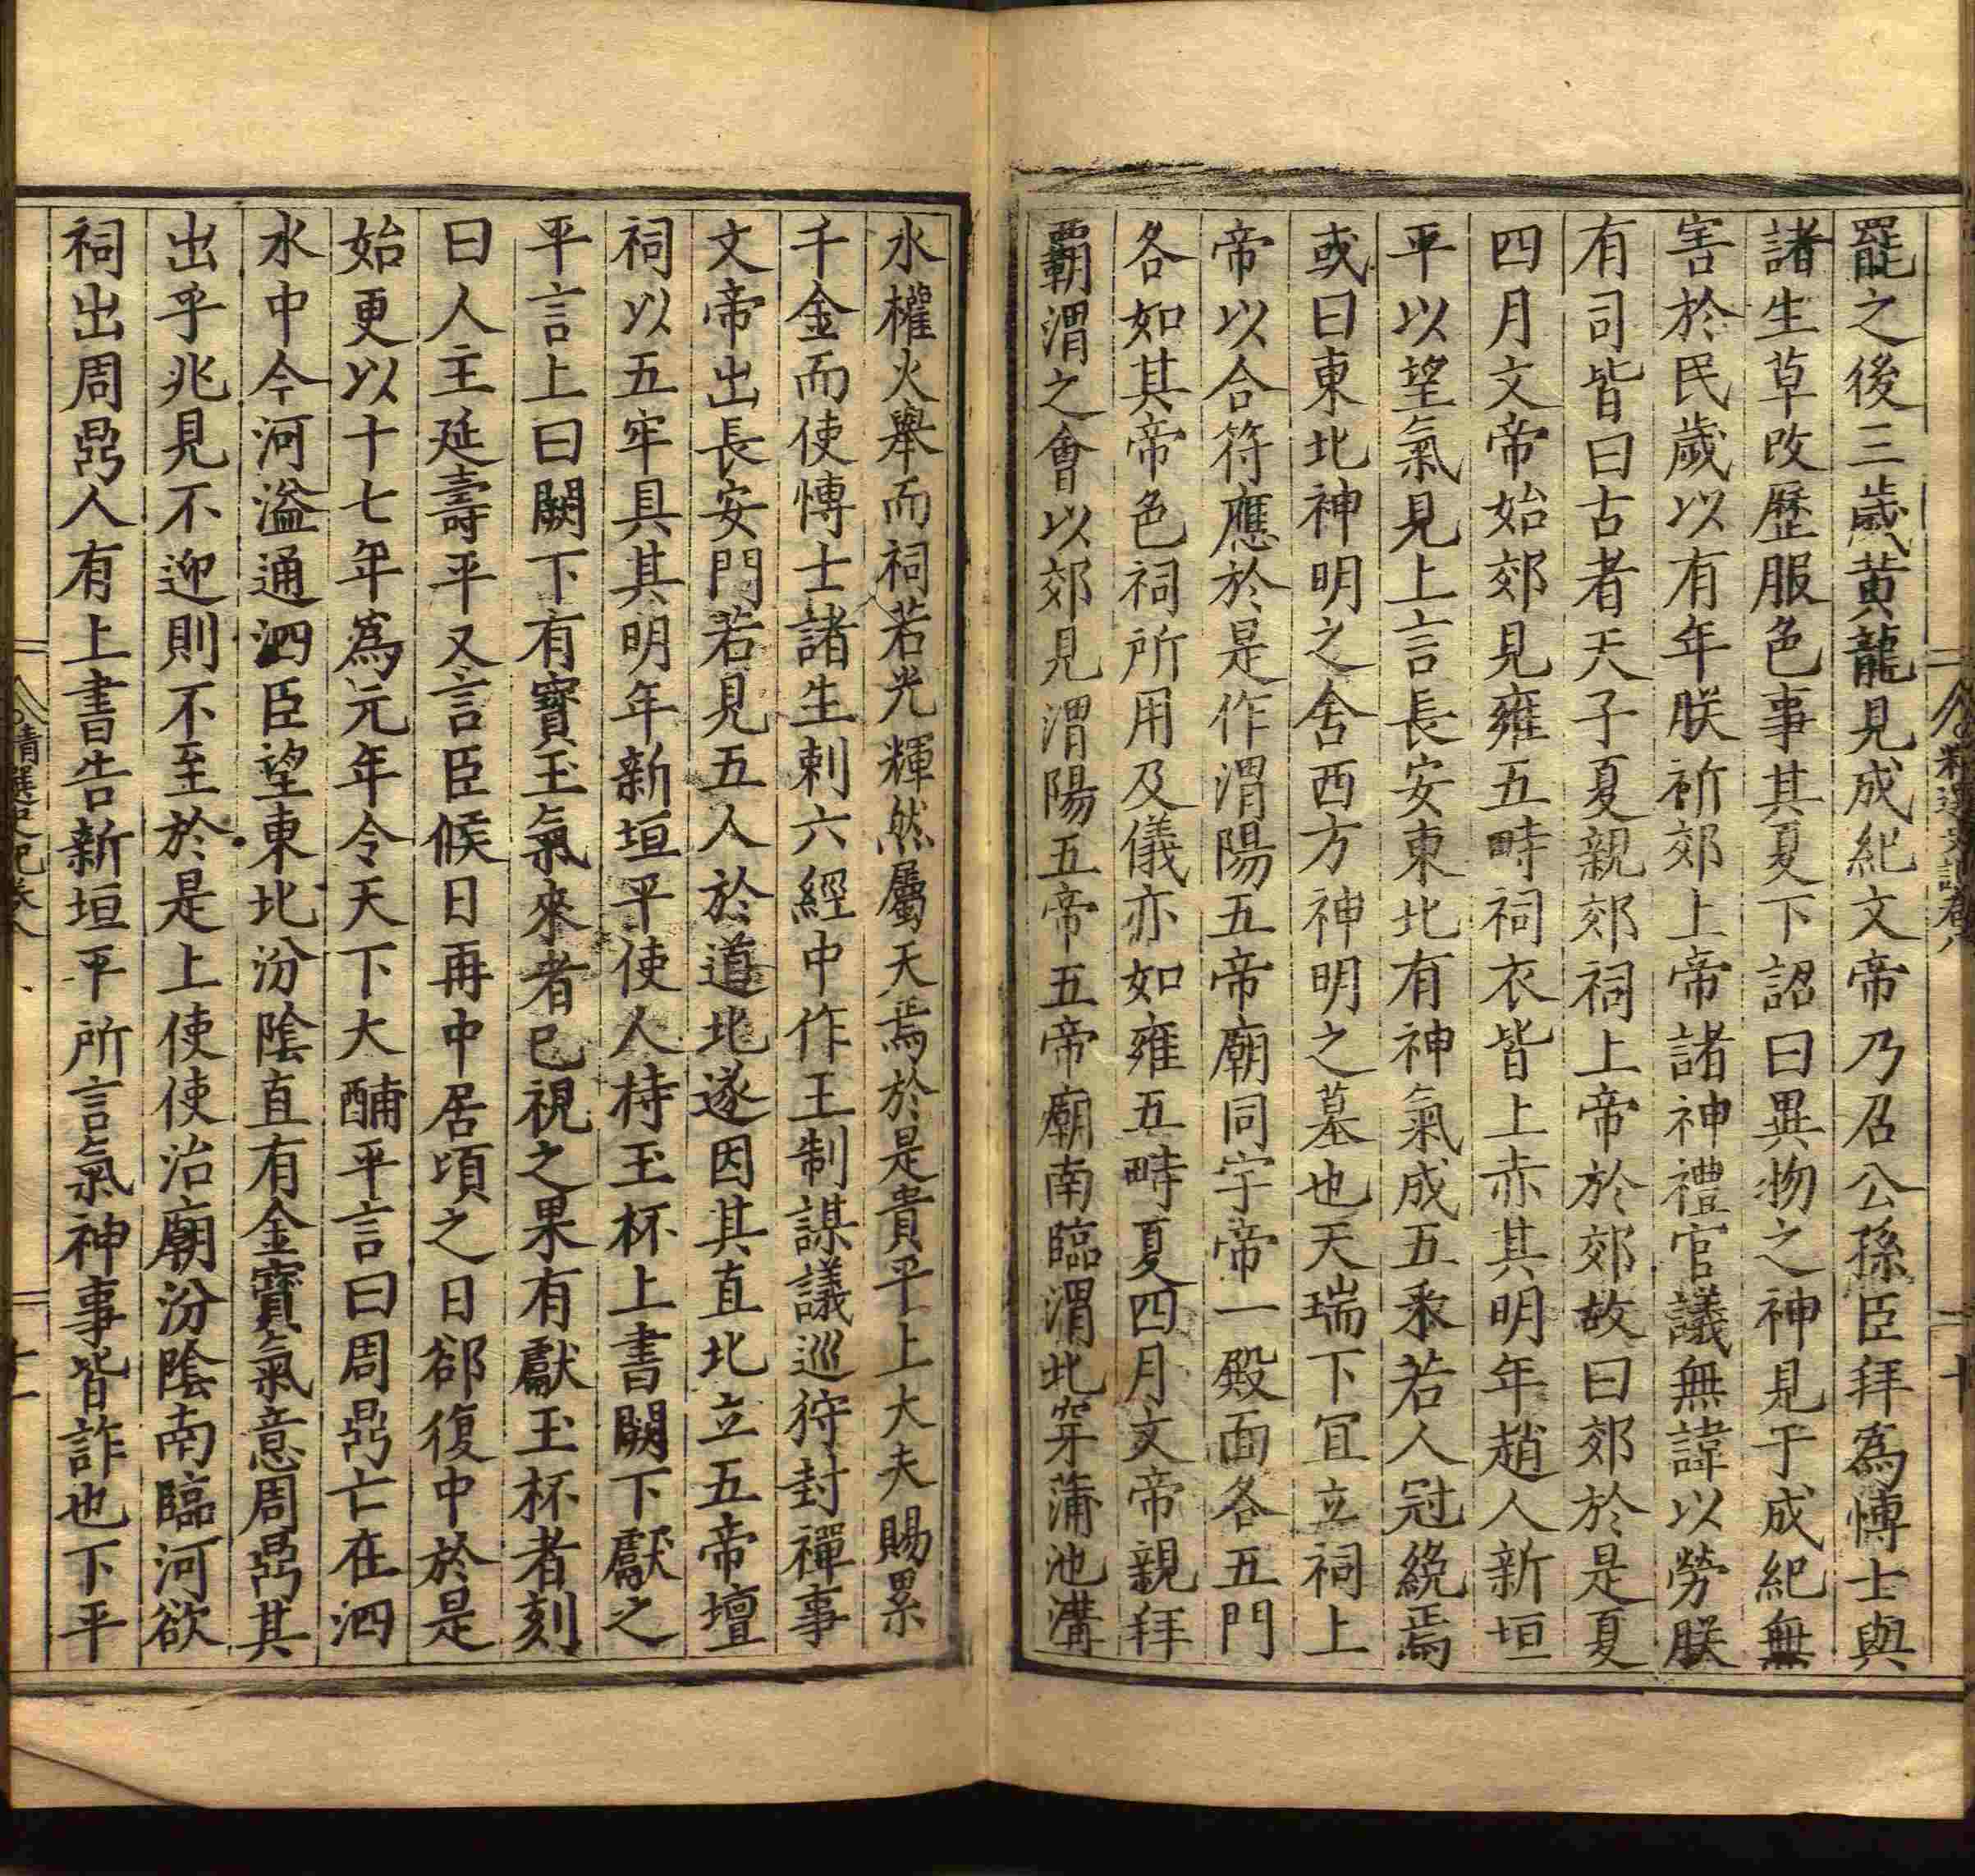 罷之後三歲黃龍見成紀文帝乃召公孫臣拜為博士與
諸生草改歷服色事其夏下詔曰異物之神見于成紀無
害於民歲以有年朕祈郊上帝諸神禮官議無諱以勞朕
有司皆曰古者天子夏親郊祠上帝於郊故曰郊於是夏
四月文帝始郊見雍五畤祠衣皆上赤其明年趙人新垣
平以望氣見上言長安東北有神氣成五采若人冠絻焉
或曰東北神明之舍西方神明之墓也天瑞下冝立祠上
帝以合符應於是作渭陽五帝廟同宇帝一殿面各五門
各如其帝色祠所用及儀亦如雍五畤夏四月文帝親拜
霸渭之會以郊見渭陽五帝五帝廟南臨渭北穿蒲池溝
水權火舉而祠若光輝然屬天焉於是貴平上大夫賜累
千金而使博士諸生刺六經中作王制謀議巡狩封禪事
文帝出長安門若見五人於道北遂因其直北立五帝壇
祠以五牢具其明年新垣平使人持玉杯上書闕下獻之
平言上曰闕下有寶玉氣來者已視之果有獻玉杯者刻
曰人主延壽平又言臣候日再中居頃之日郤復中於是
始更以十七年為元年令天下大酺平言曰周鼎亡在泗
水中今河溢通泗臣望東北汾陰直有金寶氣意周鼎其
出乎兆見不迎則不至於是上使使治廟汾陰南臨河欲
祠出周鼎人有上書告新垣平所言氣神事皆詐也下平
精選史記卷八
十
精選史記卷八
十一